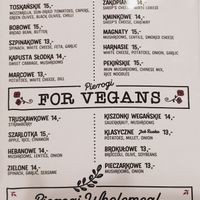 TOSKAŃSKIE 15,-
MOZZARELLA, SUN DRIED TOMATOES, CAPERS,
GREEN OLIVES, BLACK OLIVES, CHILI
BOBOWE 15,-
BROAD BEAN, BUTTER
SZPINAKOWE 13,-
SPINACH, WHITE CHEESE, FETA, GARLIC
KAPUSTA SŁODKA 14,-
SWEET CABBAGE, MUSHROOMS
MARCOWE 13,-
POTATOES, WHITE CHEESE, DILL
ZAKOPIAŃ 14,-
SHEEP'S CHEESE
KMINKOWE 14,-
CARAWAY, SHEEP'S CHEESE
MAGNATY 15,-
MUSHROOMS, LENTILS, ONION
HARNASIE 15,-
WHITE CHEESE, POTATOES, ONION, GARLIC
PEKIŃSKIE 15,-
MUN MUSHROOMS, CHINESE MIX,
RICE NOODLES
Pierogi
FOR VEGANS
TRUSKAWKOWE 14,-
STRAWBERRY
SZARLOTKA 15,-
APPLE, RICE, CINNAMON
HEBANOWE 14,-
MUSHROOMS, LENTILS, ONION
ZIELONE 14,-
SPINACH, GARLIC, SESAME
KISZONKI WEGAŃSKIE 14,-
SAUERKRAUT, MUSHROOMS
KLASYCZNE 14,-
POTATOES, MILLET, ONION
BROKUŁOWE 13,-
BROCCOLI, OLIVE, SOYBEANS
PIECZARKOWE 13,-
MUSHROOMS, ONION
Pierogi Wholemeal